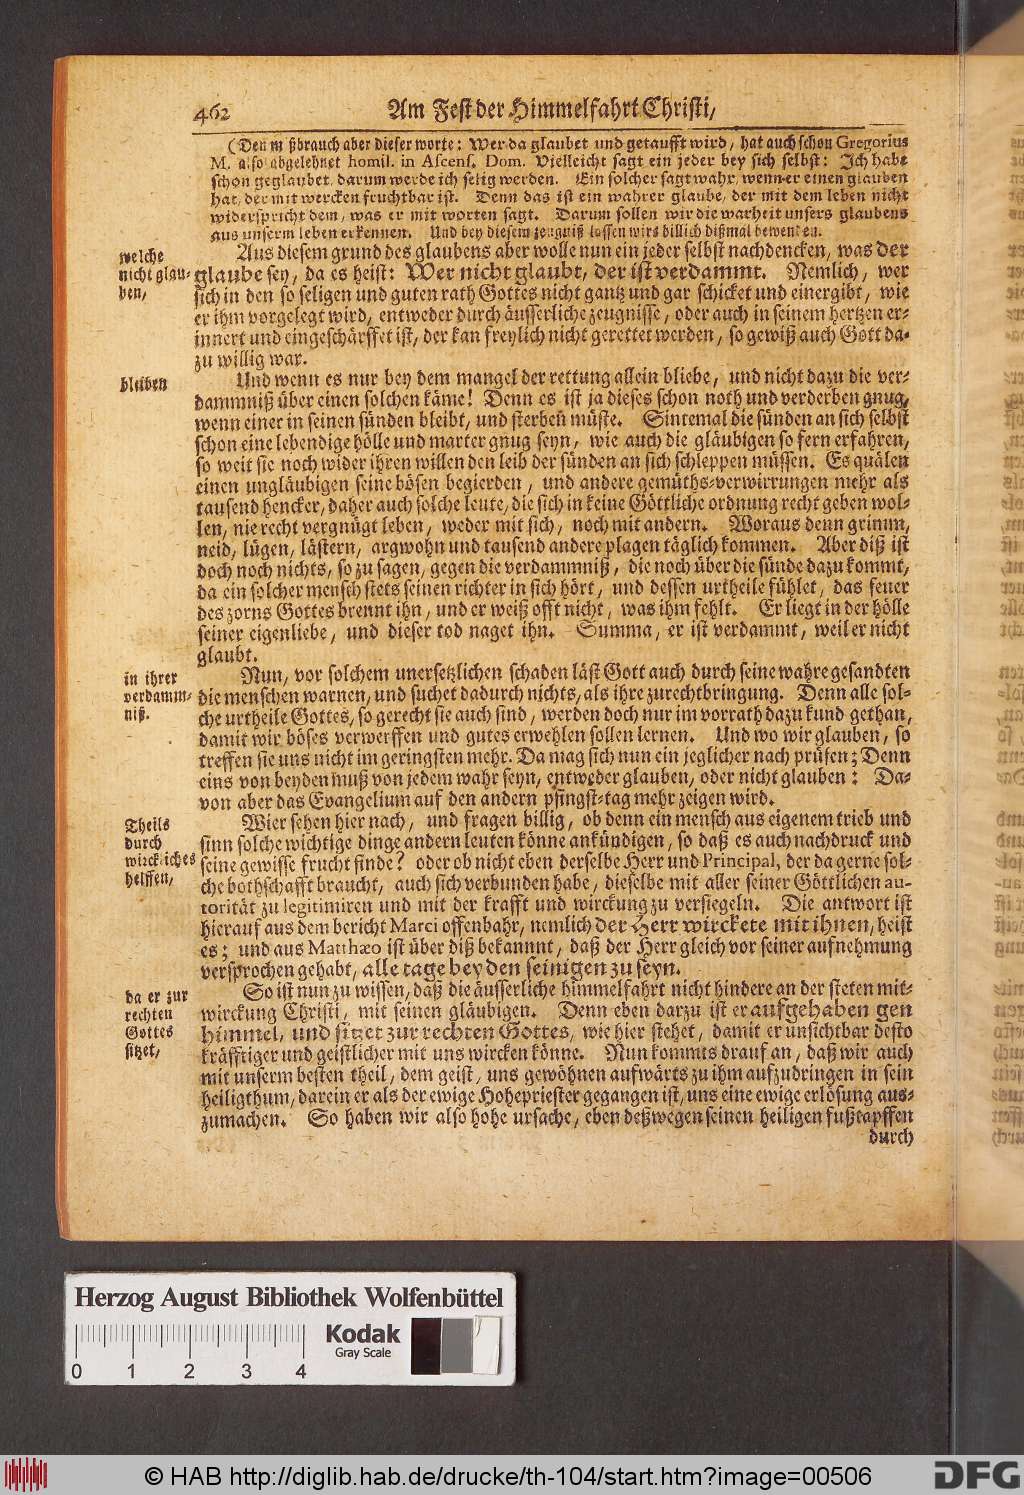 462 Am Fest der Himmelfahrt Christi,
(Den mißbrauch aber dieser worte: Wer da glaubet und getaufft wird, hat auch schon Gregorius
M. also abgelehnet homil. in Ascens. Dom. Vielleicht sagt ein jeder bey sich selbst: Ich habe
schon geglaubet, darum werde ich selig werden. Ein solcher sagt wahr, wenn er einen glauben
hat, der mit wercken fruchtbar ist. Denn das ist ein wahrer glaube, der mit dem leben nicht
widerspricht dem, was er mit worten sagt. Darum sollen wir die warheit unsers glaubens
aus unserm leben erkennen. Und bey diesem zeugniß lassen wirs billich dißmal bewenden.
welche
nicht glau-
ben,
Aus diesem grund des glaubens aber wolle nun ein jeder selbst nachdencken, was der
glaube sey, da es heist: Wer nicht glaubt, der ist verdammt. Nemlich, wer
sich in den so seligen und guten rath Gottes nicht gantz und gar schicket und einergibt, wie
er ihm vorgelegt wird, entweder durch äusserliche zeugnisse, oder auch in seinem hertzen er-
innert und eingeschärffet ist, der kan freylich nicht gerettet werden, so gewiß auch Gott da-
zu willig war.
bleiben
Und wenn es nur bey dem mangel der rettung allein bliebe, und nicht dazu die ver-
dammniß über einen solchen käme! Denn es ist ja dieses schon noth und verderben gnug,
wenn einer in seinen sünden bleibt, und sterben müste. Sintemal die sünden an sich selbst
schon eine lebendige hölle und marter gnug seyn, wie auch die gläubigen so fern erfahren,
so weit sie noch wider ihren willen den leib der sünden an sich schleppen müssen. Es quälen
einen ungläubigen seine bösen begierden, und andere gemüths-verwirrungen mehr als
tausend hencker, daher auch solche leute, die sich in keine Göttliche ordnung recht geben wol-
len, nie recht vergnügt leben, weder mit sich, noch mit andern. Woraus denn grimm,
neid, lügen, lästern, argwohn und tausend andere plagen täglich kommen. Aber diß ist
doch noch nichts, so zu sagen, gegen die verdammniß, die noch über die sünde dazu kommt,
da ein solcher mensch stets seinen richter in sich hört, und dessen urtheile fühlet, das feuer
des zorns Gottes brennt ihn, und er weiß offt nicht, was ihm fehlt. Er liegt in der hölle
seiner eigenliebe, und dieser tod naget ihn. Summa, er ist verdammt, weil er nicht
glaubt.
in ihrer
verdamm-
niß.
Nun, vor solchem unersetzlichen schaden läst Gott auch durch seine wahre gesandten
die menschen warnen, und suchet dadurch nichts, als ihre zurechtbringung. Denn alle sol-
che urtheile Gottes, so gerecht sie auch sind, werden doch nur im vorrath dazu kund gethan,
damit wir böses verwerffen und gutes erwehlen sollen lernen. Und wo wir glauben, so
treffen sie uns nicht im geringsten mehr. Da mag sich nun ein jeglicher nach prüfen; Denn
eins von beyden muß von jedem wahr seyn, entweder glauben, oder nicht glauben: Da-
von aber das Evangelium auf den andern pfingst-tag mehr zeigen wird.
Theils
durch
wirckliches
helffen,
Wier sehen hier nach, und fragen billig, ob denn ein mensch aus eigenem trieb und
sinn solche wichtige dinge andern leuten könne ankündigen, so daß es auch nachdruck und
seine gewisse frucht finde? oder ob nicht eben derselbe Herr und Principal, der da gerne sol-
che bothschafft braucht, auch sich verbunden habe, dieselbe mit aller seiner Göttlichen au-
torität zu legitimiren und mit der krafft und wirckung zu versiegeln. Die antwort ist
hierauf aus dem bericht Marci offenbahr, nemlich der Herr wirckete mit ihnen, heist
es; und aus Matthæo ist über diß bekannnt, daß der Herr gleich vor seiner aufnehmung
versprochen gehabt, alle tage bey den seinigen zu seyn.
da er zur
rechten
Gottes
sitzet,
So ist nun zu wissen, daß die äusserliche himmelfahrt nicht hindere an der steten mit-
wirckung Christi, mit seinen gläubigen. Denn eben darzu ist er aufgehaben gen
himmel, und sitzet zur rechten Gottes, wie hier stehet, damit er unsichtbar desto
kräfftiger und geistlicher mit uns wircken könne. Nun kommts drauf an, daß wir auch
mit unserm besten theil, dem geist, uns gewöhnen aufwärts zu ihm aufzudringen in sein
heiligthum, darein er als der ewige Hohepriester gegangen ist, uns eine ewige erlösung aus-
zumachen. So haben wir also hohe ursache, eben deßwegen seinen heiligen fußtapffen
durch
Herzog August Bibliothek Wolfenbüttel
Kodak
Gray Scale
0 1 2 3 4
© HAB http://diglib.hab.de/drucke/th-104/start.htm?image=00506
DFG